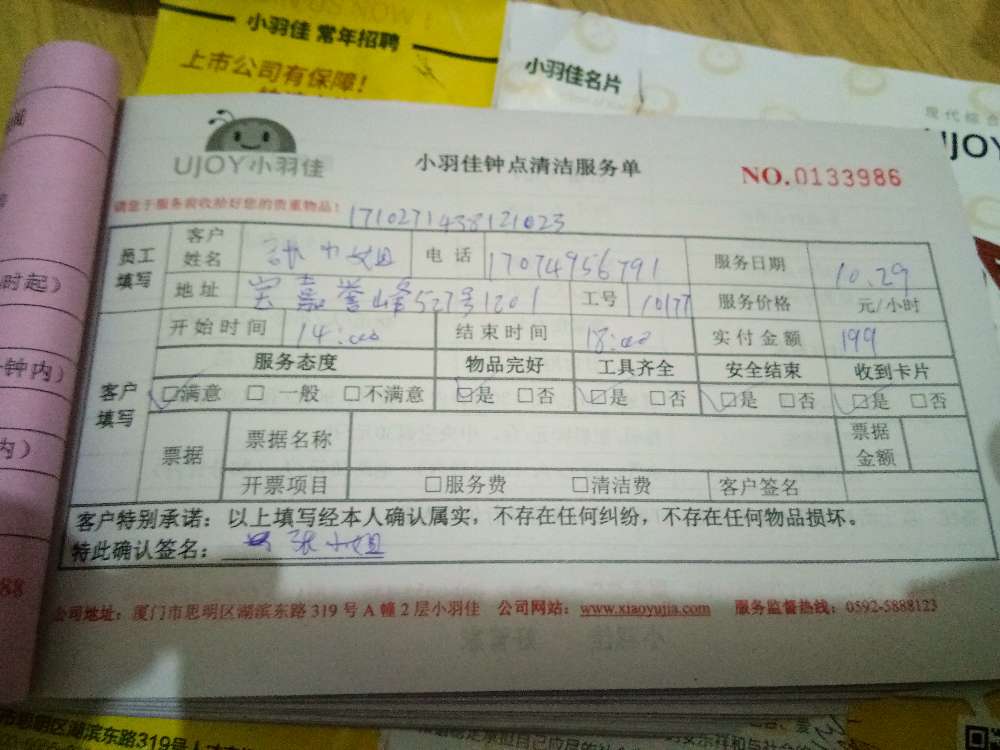 小羽佳 常年招聘
上市公司有保障！
小羽佳名片
现代综合
UJOY
UJOY小羽佳
小羽佳钟点清洁服务单
NO.0133986
请您于服务前收拾好您的贵重物品！
1710271438121023
员工填写 客户姓名 张小姐 电话 17074956791 服务日期 10.29
地址 宝嘉誉峰527号1201 工号 10177 服务价格 元/小时
开始时间 14:00 结束时间 18:00 实付金额 199
客户填写 服务态度 物品完好 工具齐全 安全结束 收到卡片
☑满意 □ 一般 □不满意 ☑是 □否 ☑是 □否 ☑是 □否 ☑是 □否
票据 票据名称 票据金额
开票项目 □服务费 □清洁费 客户签名
客户特别承诺：以上填写经本人确认属实，不存在任何纠纷，不存在任何物品损坏。
特此确认签名： 张小姐
公司地址：厦门市思明区湖滨东路319号A幢2层小羽佳 公司网站：www.xiaoyujia.com 服务监督热线：0592-5888123
时起）
钟内）
内）
88